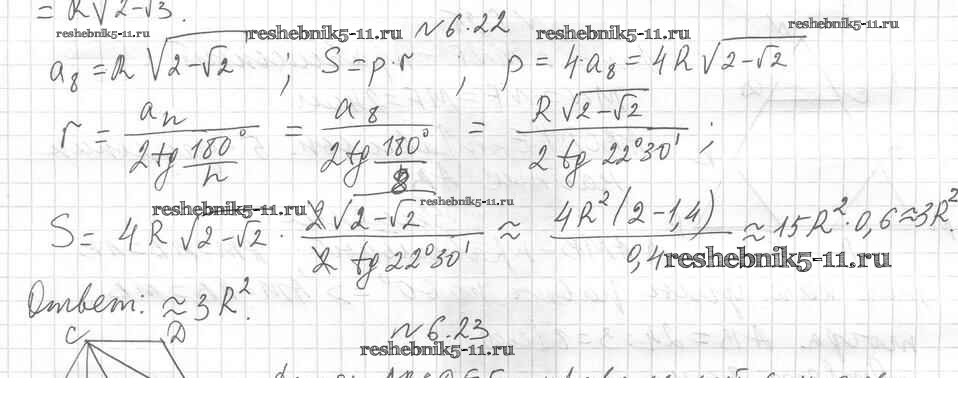 = R√2-√3.
reshebnik5-11.ru reshebnik5-11.ru № 6.22 reshebnik5-11.ru
a₈ = R √2-√2 ; S = p·r ; p = 4·a₈ = 4R √2-√2
r = aₙ / (2 tg 180°/n) = a₈ / (2 tg 180°/8) = R √2-√2 / (2 tg 22°30') ;
reshebnik5-11.ru reshebnik5-11.ru
S = 4R √2-√2 · 2√2-√2 / (2 tg 22°30') ≈ 4R²(2-1,4) / 0,4 ≈ 15R²·0,6 ≈ 3R².
reshebnik5-11.ru
Ответ: ≈ 3R².
№ 6.23
C D reshebnik5-11.ru